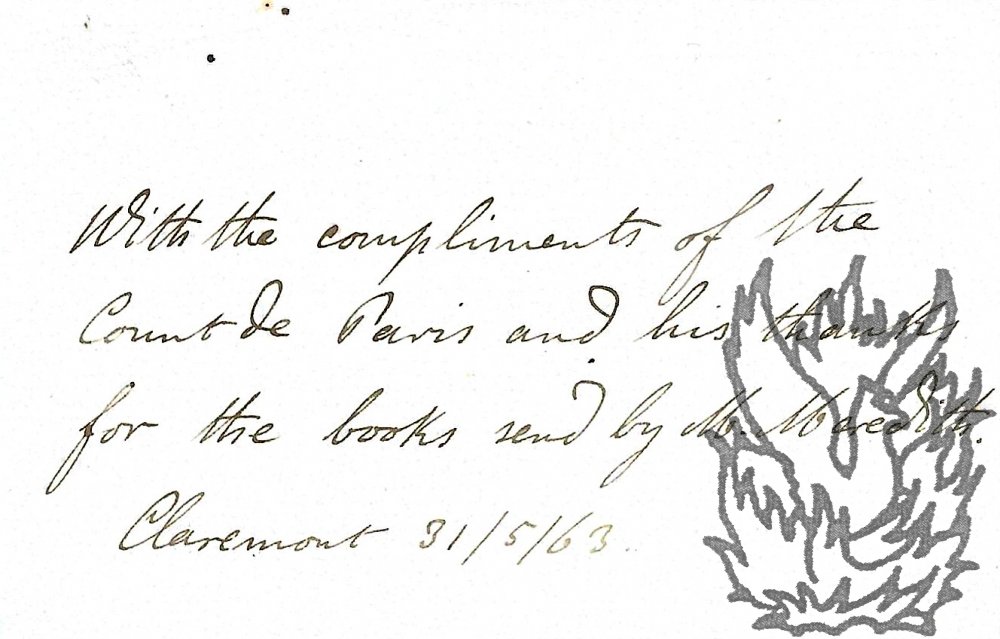 With the compliments of the
Count de Paris and his thanks
for the books send by M. Meredith.
Claremont 31/5/63.